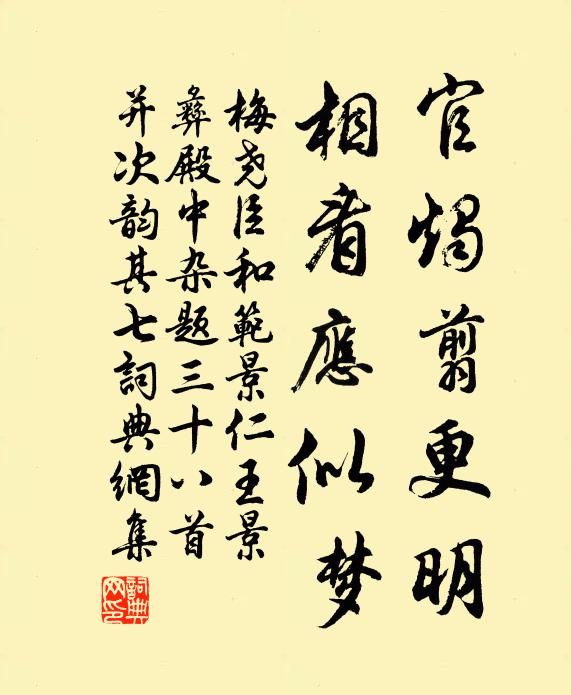 官烛翦更明
相看應似梦
梅尧臣和範景仁王景
彝殿中杂题三十八首
并次韵其七詞典網集
詞典网印